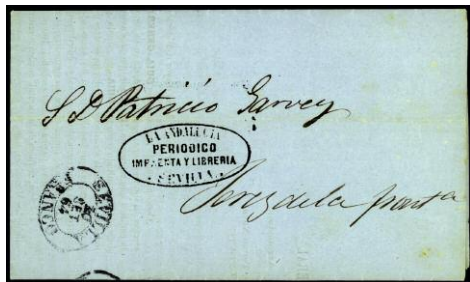 S D Patricio Garvey
LA ANDALUCIA
PERIODICO
IMPRENTA Y LIBRERIA
SEVILLA
Jerez de la fronta
FRANCO
SEVILLA